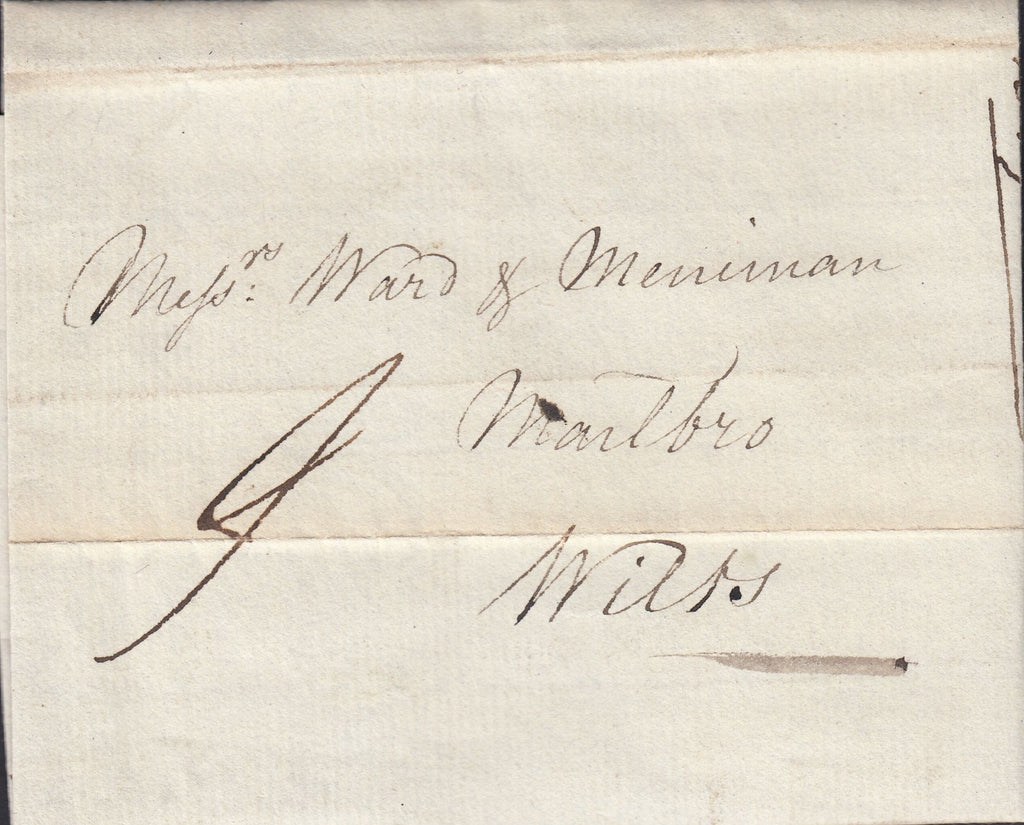 Messrs: Ward & Merriman
Marlbro
4
Wilts